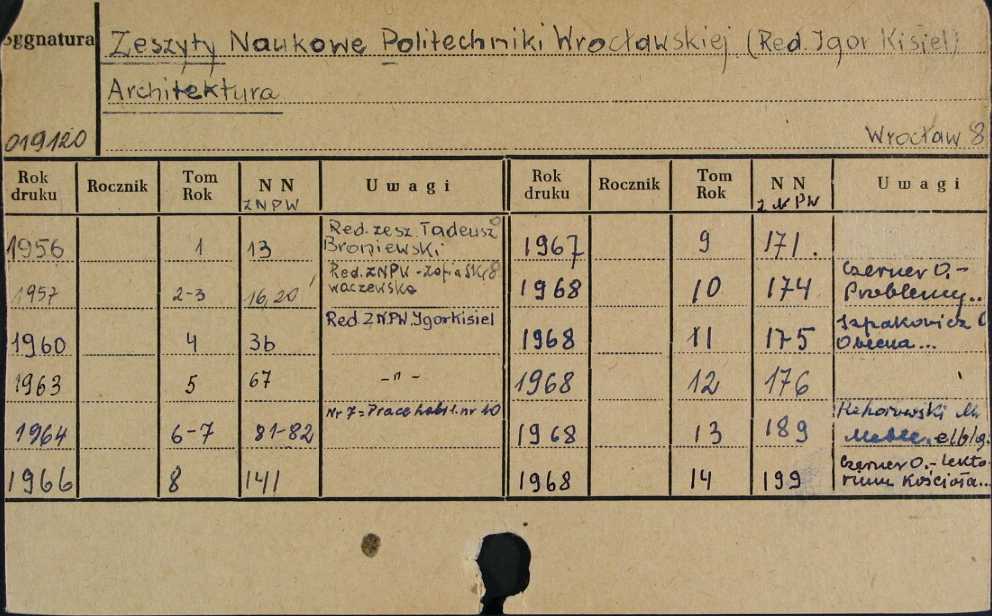 Sygnatura Zeszyty Naukowe Politechniki Wrocławskiej (Red. Igor Kisiel)
Architektura
019120 Wrocław 8
Rok druku Rocznik Tom Rok NN ZNPW Uwagi Rok druku Rocznik Tom Rok NN ZNPW Uwagi
1956 1 13 Red. zesz. Tadeusz Broniewski 1967 9 171.
1957 2-3 16, 20 Red. ZNPW - Zofia Skwaczewska 1968 10 174 Czerner O.- Problemy..
1960 4 36 Red. ZNPW Igor Kisiel 1968 11 175 Szpakowicz Obecna...
1963 5 67 -"- 1968 12 176
1964 6-7 81-82 Nr 7 = Prace habil. nr 10 1968 13 189 Rehorowski M. Meble elblg.
1966 8 141 1968 14 199 Czerner O.- Lektorium Kościoła...